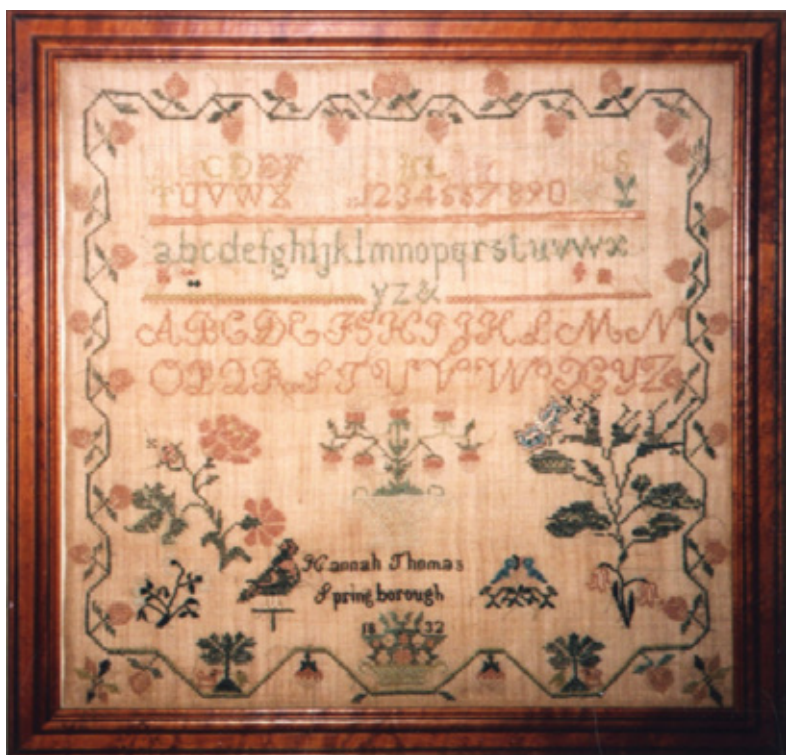 C D E F H L R S
T U V W X 1 2 3 4 5 6 7 8 9 0 Y
a b c d e f g h i j k l m n o p q r s t u v w x
y z &
A B C D E F G H I J K L M N
O P Q R S T U V W X Y Z
Hannah Thomas
Springborough
18 32